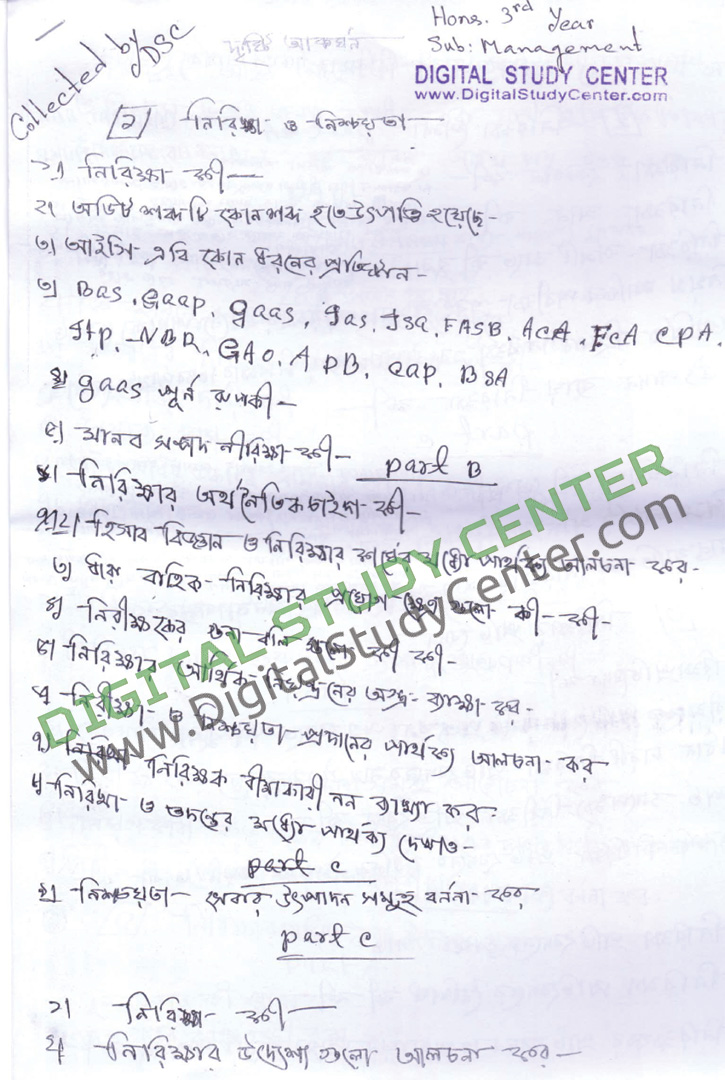 Collected by DSC
Hons. 3rd Year
Sub: Management
DIGITAL STUDY CENTER
www.DigitalStudyCenter.com
[১] নিরিক্ষা ও নিশ্চয়তা
১) নিরিক্ষা কী—
২) অডিট শব্দটি কোন শব্দ হতে উৎপত্তি হয়েছে-
৩) আইসিএবি কোন ধরনের প্রতিষ্ঠান-
৩) BaS, Gaap, gaas, Ias, Isa, FASB, ACA, FCA CPA.
NBR, GAO, APB, BSA
gaas পূর্ন রূপ কী-
৫) মানব সম্পদ নীরিক্ষা কী-
part B
নিরিক্ষার অর্থনৈতিক চাহিদা কী-
২) হিসাব বিজ্ঞান ও নিরিক্ষার মধ্যে পার্থক্য আলচনা কর-
৩) নিরিক্ষার ক্ষেত্র গুলো কী কী-
৪) নিরীক্ষকের গুনাবলি গুলো কী কী-
৫) নিরিক্ষার আর্থিক ব্যাক্ষা কর-
নিরীক্ষা ও নিশ্চয়তা প্রদানের পার্থক্য আলচনা কর
৭) নিরিক্ষক বীমাকারী নন ব্যাখ্যা কর
৮) নিরিক্ষা ও তদন্তের মধ্যে পার্থক্য দেখাও-
part c
২) নিশ্চয়তা সেবার উৎপাদন সমুহ বর্ননা কর
part c
১) নিরিক্ষা কী—
২) নিরিক্ষার উদ্দেশ্য গুলো আলচনা কর—
DIGITAL STUDY CENTER
www.DigitalStudyCenter.com